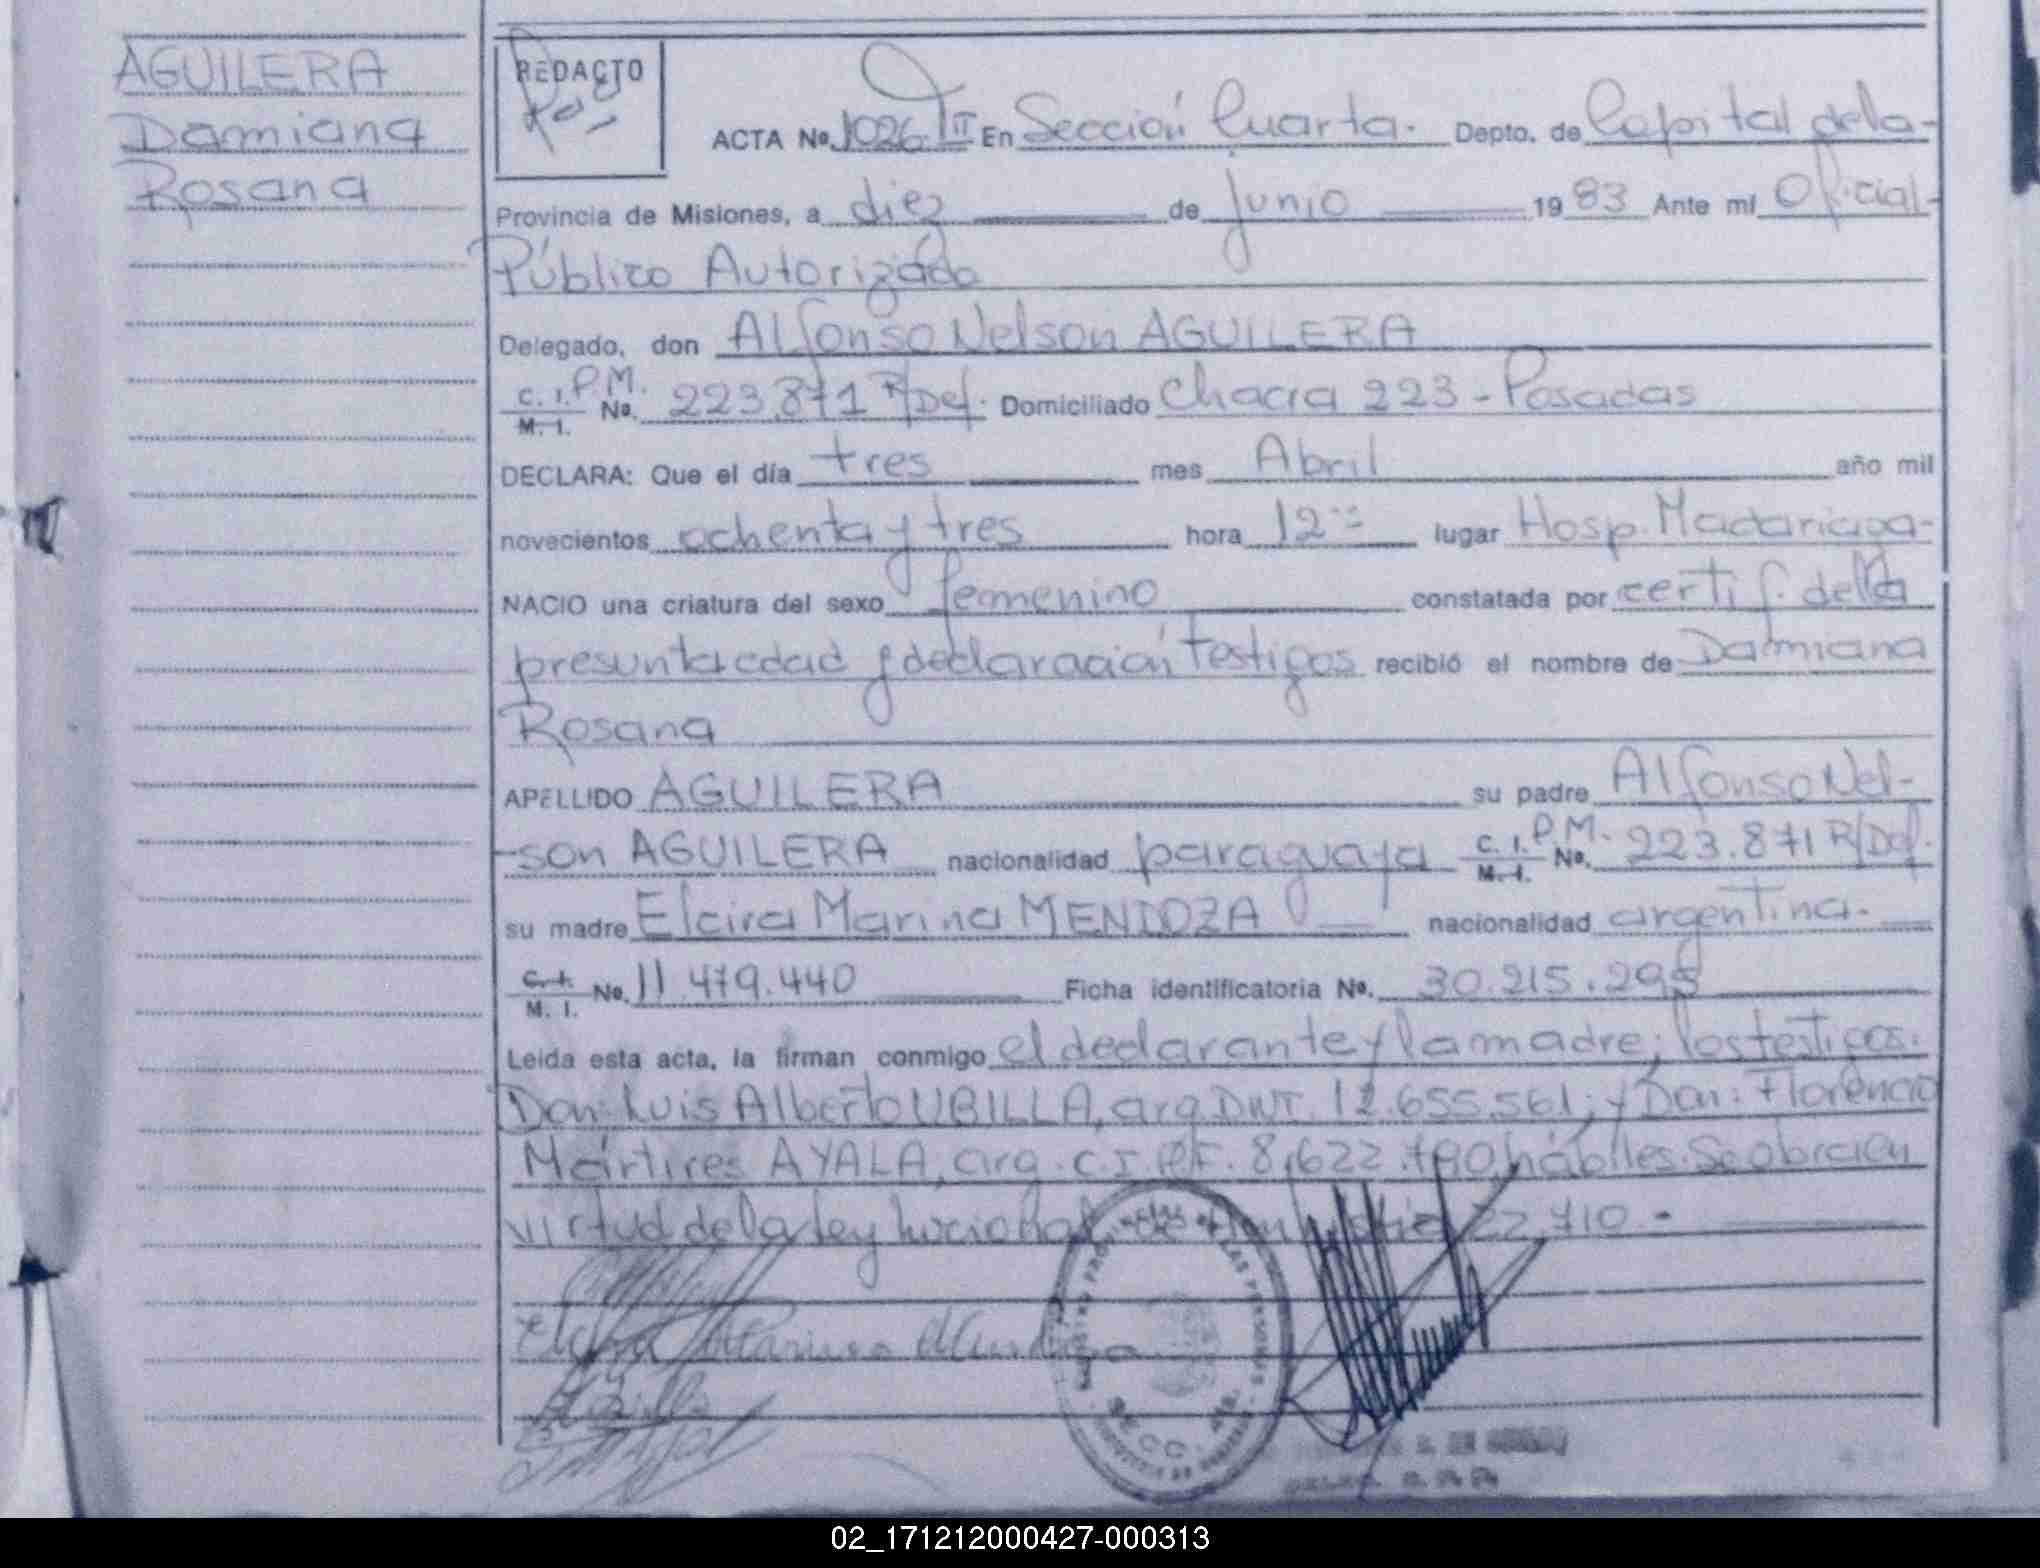 AGUILERA
Damiana
Rosana
REDACTO
ACTA No. 1026 III En Sección Cuarta. Depto. de Capital de la
Provincia de Misiones, a diez de junio 1983 Ante mí Oficial
Público Autorizado
Delegado, don Alfonso Nelson AGUILERA
C. I. P.M. M. I. No. 223.871 R/Def. Domiciliado Chacra 223 - Posadas
DECLARA: Que el día tres mes Abril año mil
novecientos ochenta y tres hora 12 lugar Hosp. Madariaga-
NACIO una criatura del sexo femenino constatada por certif. de la
presunta edad y declaración testigos recibió el nombre de Damiana
Rosana
APELLIDO AGUILERA su padre Alfonso Nel-
-son AGUILERA nacionalidad paraguaya C. I. P.M. M. I. No. 223.871 R/Def.
su madre Elcira Marina MENDOZA nacionalidad argentina.
C. I. M. I. No. 11.479.440 Ficha identificatoria No. 30.215.295
Leida esta acta, la firman conmigo el declarante y la madre; los testigos.
Don: Luis Alberto UBILLA, arg. DNI. 12.655.561; y Don: Florencio
Mártires AYALA, arg. C.I. P.F. 8.622.790, hábiles. Se obra en
virtud de la ley Nacional de 22.710.-
Elcira Marina Mendoza
02_171212000427-000313